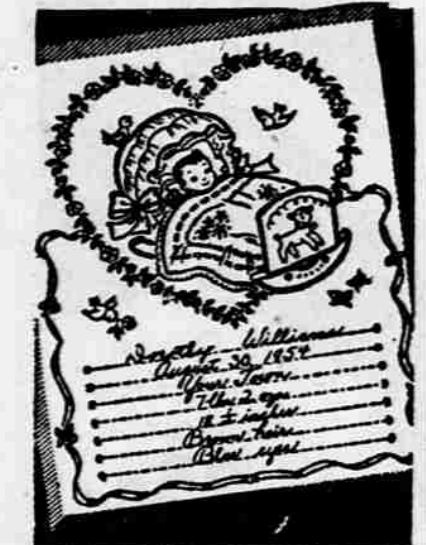 Dorothy Williams
August 30, 1954
Your Town
7 lbs 2 ozs
18 ½ inches
Brown hair
Blue eyes